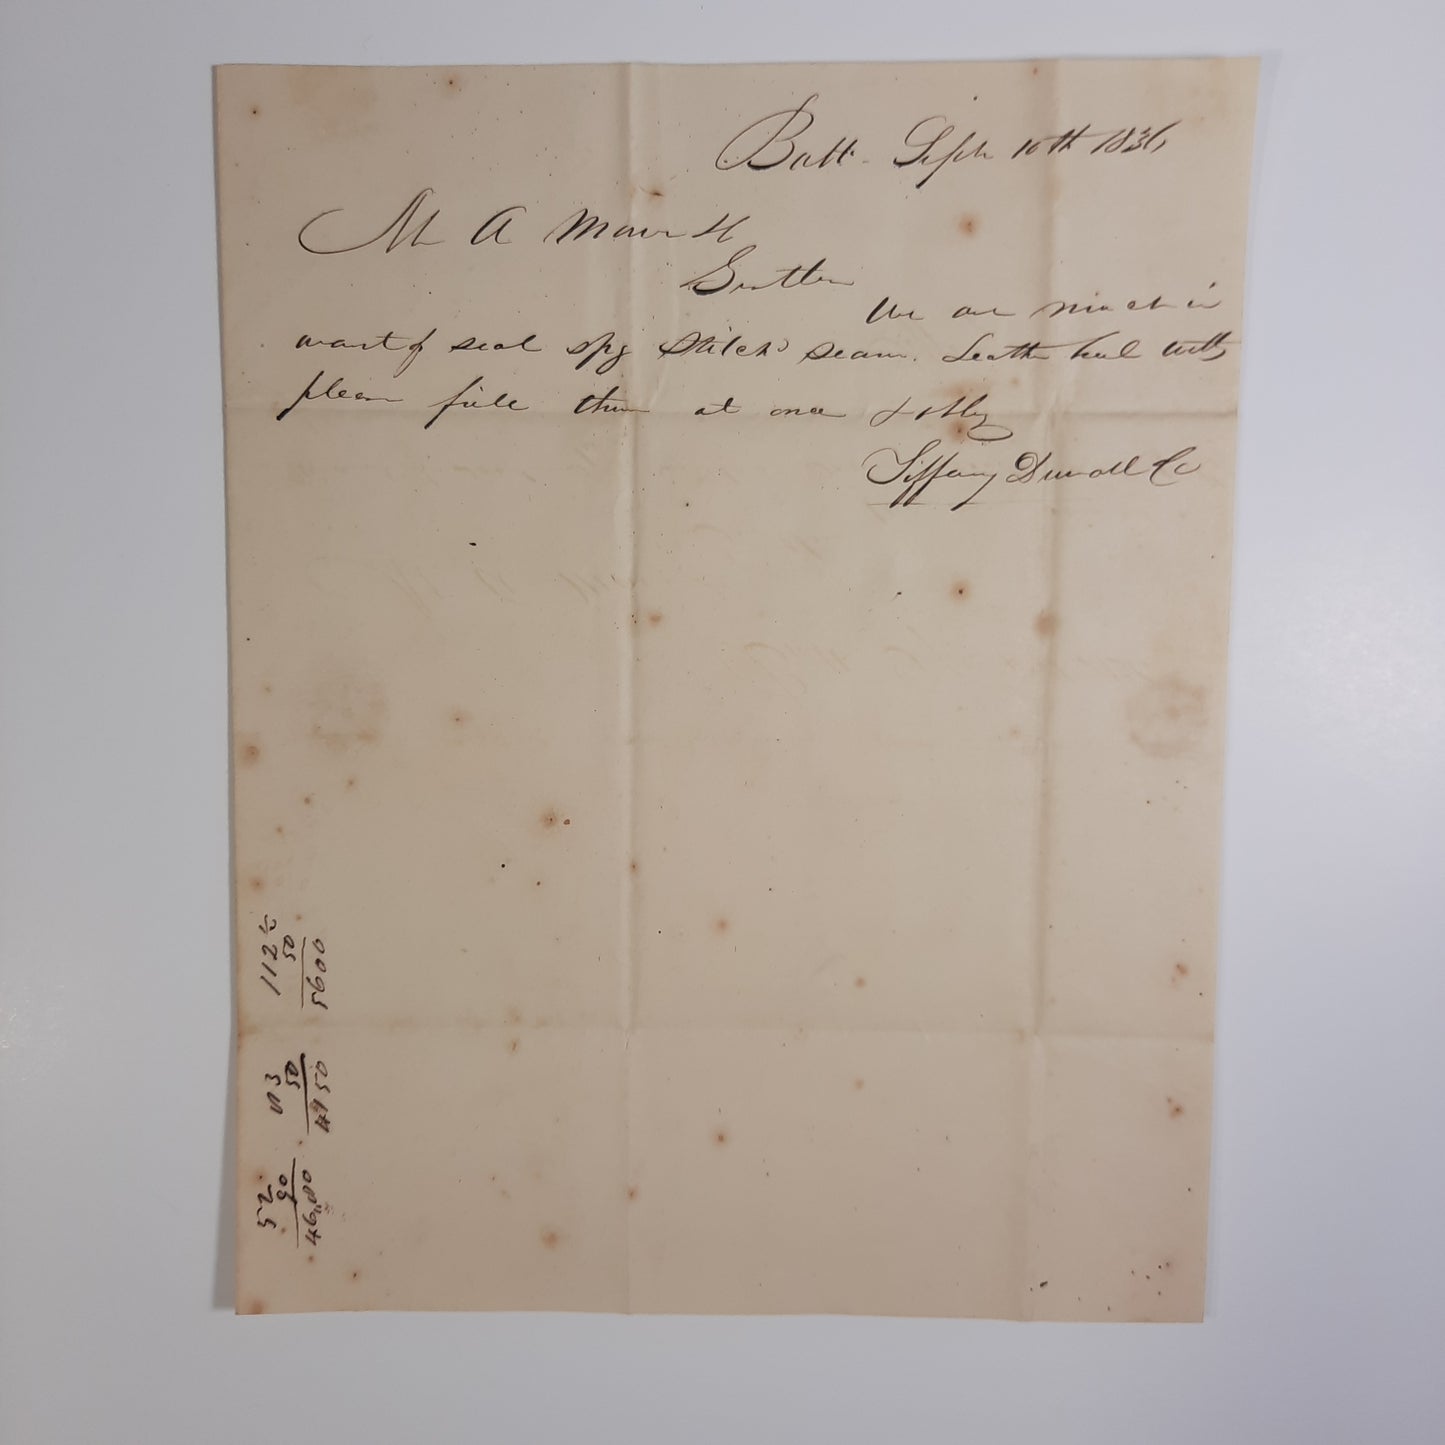 Balt. Sept 10th 1836
M A
Gentlen
We are much in
want of seal spg stitchd seam. Leath heel
please fill them at once & obly
Tiffany Duvall Co
112 1/2
50
5600
93
50
4650
52
90
4680